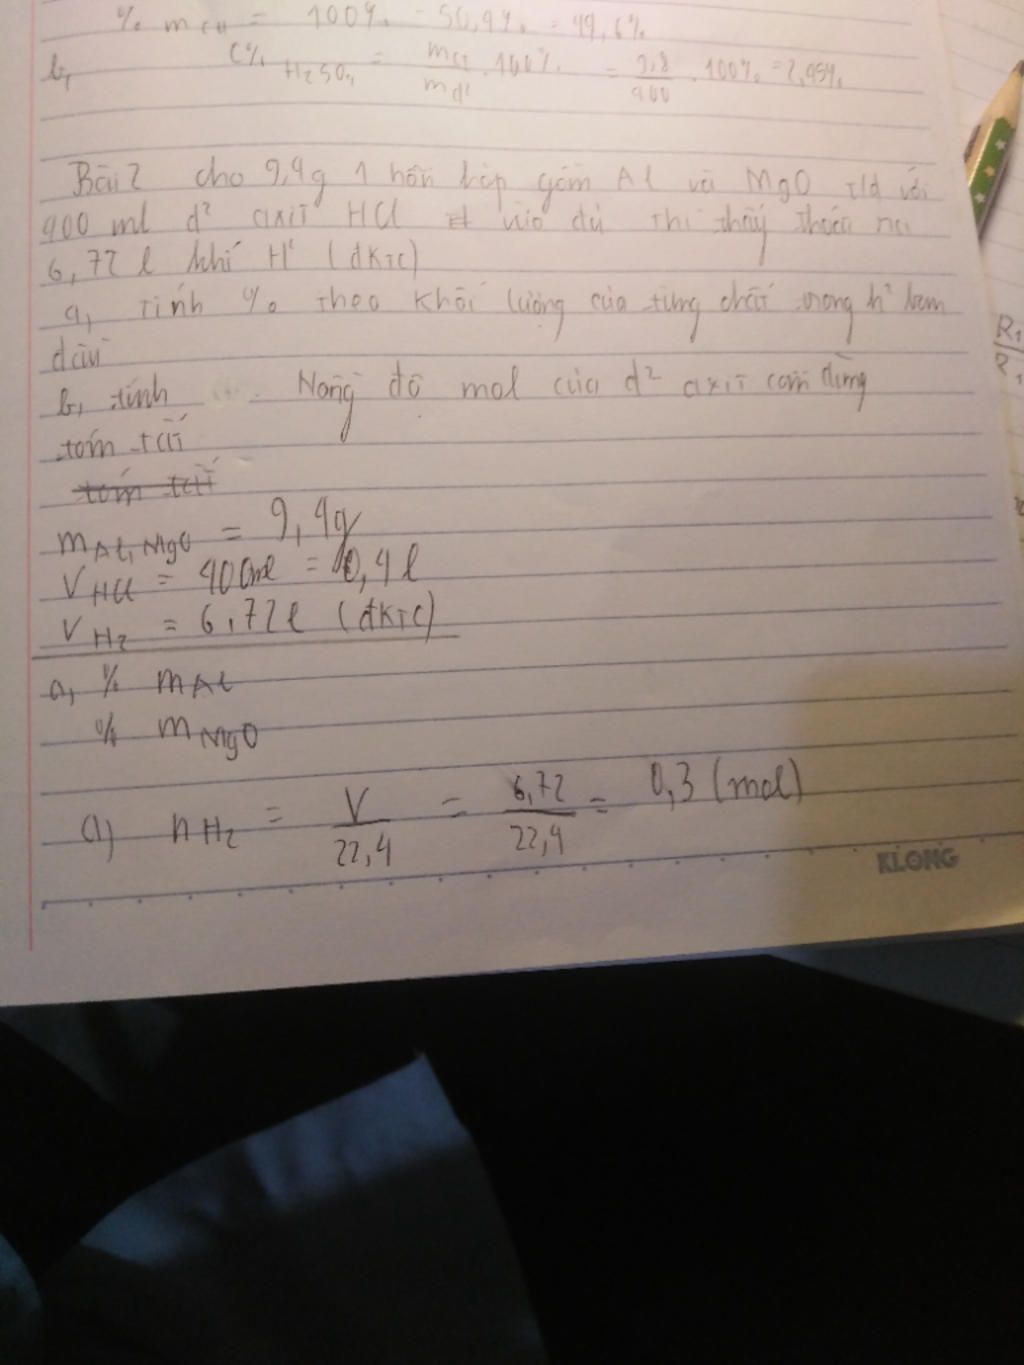 % m Cu = 100% - 50,4% = 49,6%
b, C% H2SO4 = mct/md² . 100% = 9,8/400 . 100% = 2,45%
Bài 2 cho 9,4g 1 hỗn hợp gồm Al và MgO t/d với
400 ml d² axit HCl vừa đủ thì thấy thoát ra
6,72 l khí H² (đktc)
a, Tính % theo khối lượng của từng chất trong h² ban
đầu
b, tính Nồng độ mol của d² axit cần dùng
tóm tắt
tóm tắt
m Al, MgO = 9,4g
V HCl = 400ml = 0,4 l
V H2 = 6,72 l (đktc)
a, % m Al
% m MgO
a) n H2 = V/22,4 = 6,72/22,4 = 0,3 (mol)
KLONG
R1
R1